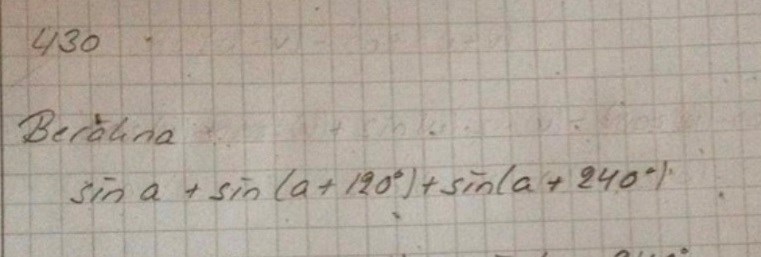 430
Beräkna
sin a + sin (a + 120°) + sin(a + 240°)